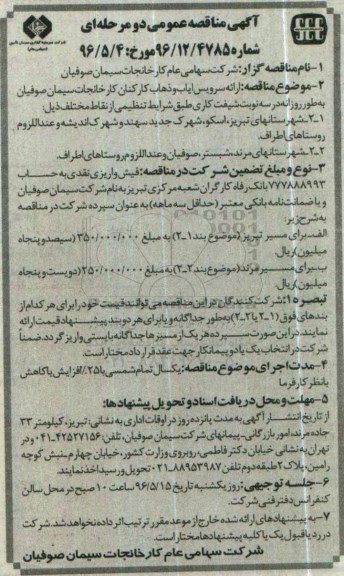 آگهی مناقصه عمومی دو مرحله‌ای
شماره ۹۶/۱۲/۴۷۸۵ مورخ: ۹۶/۵/۴
۱-نام مناقصه گزار: شرکت سهامی عام کارخانجات سیمان صوفیان
۲-موضوع مناقصه: ارائه سرویس ایاب و ذهاب کارکنان کارخانجات سیمان صوفیان
به طور روزانه در سه نوبت شیفت کاری طبق شرایط تنظیمی از نقاط مختلف ذیل:
۱-۲-شهرستانهای تبریز، اسکو، شهرک جدید سهند و شهرک اندیشه و عنداللزوم
روستاهای اطراف.
۲-۲-شهرستانهای مرند، شبستر، صوفیان و عنداللزوم روستاهای اطراف.
۳-نوع و مبلغ تضمین شرکت در مناقصه: فیش واریزی نقدی به حساب
۷۷۷۸۸۸۹۹۳ بانک رفاه کارگران شعبه مرکزی تبریز به نام شرکت سیمان صوفیان
و یا ضمانت نامه بانکی معتبر (حداقل سه ماهه) به عنوان سپرده شرکت در مناقصه
به شرح زیر:
الف-برای مسیر تبریز (موضوع بند ۱-۲) به مبلغ ۳۵۰/۰۰۰/۰۰۰ (سیصد و پنجاه
میلیون) ریال.
ب-برای مسیر مرند (موضوع بند ۲-۲) به مبلغ ۲۵۰/۰۰۰/۰۰۰ (دویست و پنجاه
میلیون) ریال.
تبصره ۱: شرکت کنندگان در این مناقصه می توانند قیمت خود را برای هر کدام از
بندهای فوق (۱-۲ یا ۲-۲) به طور جداگانه و یا برای هر دو بند پیشنهاد قیمت ارائه
نمایند. در این صورت سپرده هر یک از مسیرها جداگانه بایستی واریز گردد. ضمناً
شرکت در انتخاب یک یا دو پیمانکار جهت عقد قرارداد مختار است.
۴-مدت اجرای موضوع مناقصه: یکسال تمام شمسی با ۲۵٪ افزایش یا کاهش
با نظر کارفرما
۵-مهلت و محل دریافت اسناد و تحویل پیشنهادها:
از تاریخ انتشار آگهی به مدت پانزده روز در اوقات اداری به نشانی: تبریز، کیلومتر ۳۳
جاده مرند، امور بازرگانی-پیمانهای شرکت سیمان صوفیان، تلفن: ۴۲۵۲۷۱۵۶-۰۴۱ و در
تهران به نشانی خیابان دکتر فاطمی، روبروی وزارت کشور، خیابان چهارم، نبش کوچه
رامین، پلاک ۲ طبقه دوم تلفن ۸۸۹۵۳۹۸۷-۰۲۱ تحویل و رسید اخذ نمایند
۶-جلسه توجیهی: روز یکشنبه تاریخ ۹۶/۵/۱۵ ساعت ۱۰ صبح در محل سالن
کنفرانس دفتر فنی شرکت.
۷-به پیشنهادهای ارائه شده خارج از موعد مقرر ترتیب اثر داده نخواهد شد. شرکت
در رد یا قبول یک یا کلیه پیشنهادها مختار است.
شرکت سهامی عام کارخانجات سیمان صوفیان